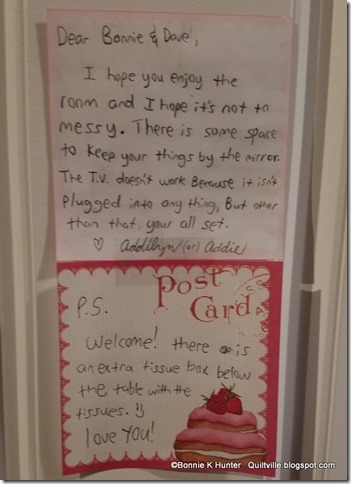 Dear Bonnie & Dave,
I hope you enjoy the
room and I hope it's not to
messy. There is some space
to keep your things by the mirror.
The T.V. doesn't work Because it isn't
Plugged into any thing, But other
than that, your all set.
♡ Addilyn (or) Addie
Post
Card
P.S.
Welcome! there is
an extra tissue box below
the table with the
tissues. :)
love YOU!
©Bonnie K Hunter Quiltville.blogspot.com